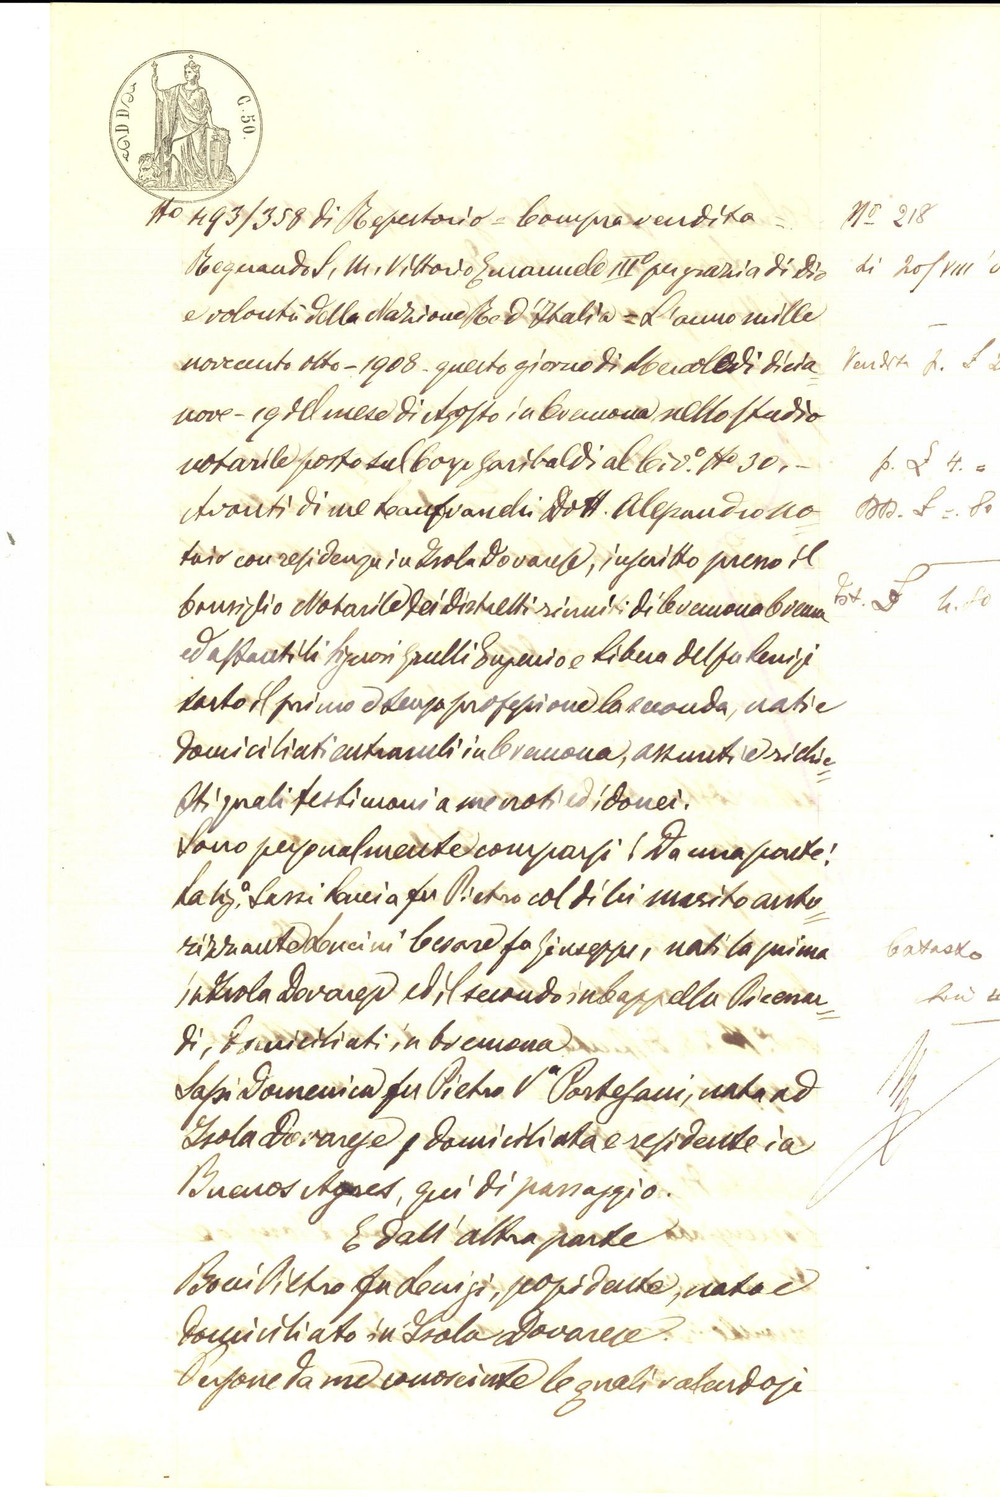 C. 50.
No 493/358 di Repertorio = Compra vendita =
Regnando S. M. Vittorio Emanuele IIIº per grazia di Dio
e volontà della Nazione Re d'Italia = L'anno mille
novecento otto - 1908 - questo giorno di Mercoledì dicia=
nove - 19 del mese di Agosto in Cremona nello studio
notarile posto sul Corso Garibaldi al Civº. No 30. -
Avanti di me Lanfranchi Dott. Alessandro no=
taio con residenza in Isola Dovarese, inscritto presso il
Consiglio Notarile dei distretti riuniti di Cremona Crema
ed assanti li Signori Grulli Eugenio e Libera del fu Luigi
sarto il primo e senza professione la seconda, nati e
domiciliati entrambi in Cremona, assunti e richie=
sti quali testimoni a me noti ed idonei.
Sono personalmente comparsi! Da una parte!
La Sigª. Sassi Lucia fu Pietro col di lei marito auto=
rizzante Lucini Cesare fu Giuseppe, nati la prima
in Isola Dovarese ed il secondo in Cappella Picenar=
di, domiciliati in Cremona
Sassi Domenica fu Pietro Vª Portesani, nata ad
Isola Dovarese, domiciliata e residente in
Buenos Ayres, qui di passaggio.
E dall'altra parte
Boni Pietro fu Luigi, possidente, nato e
domiciliato in Isola Dovarese.
Persone da me conosciute le quali volendosi
Nº 218
li 20/VIII
Vendita p. L
p. L 4. =
L =. 80
Tot. L 4.80
Catasto